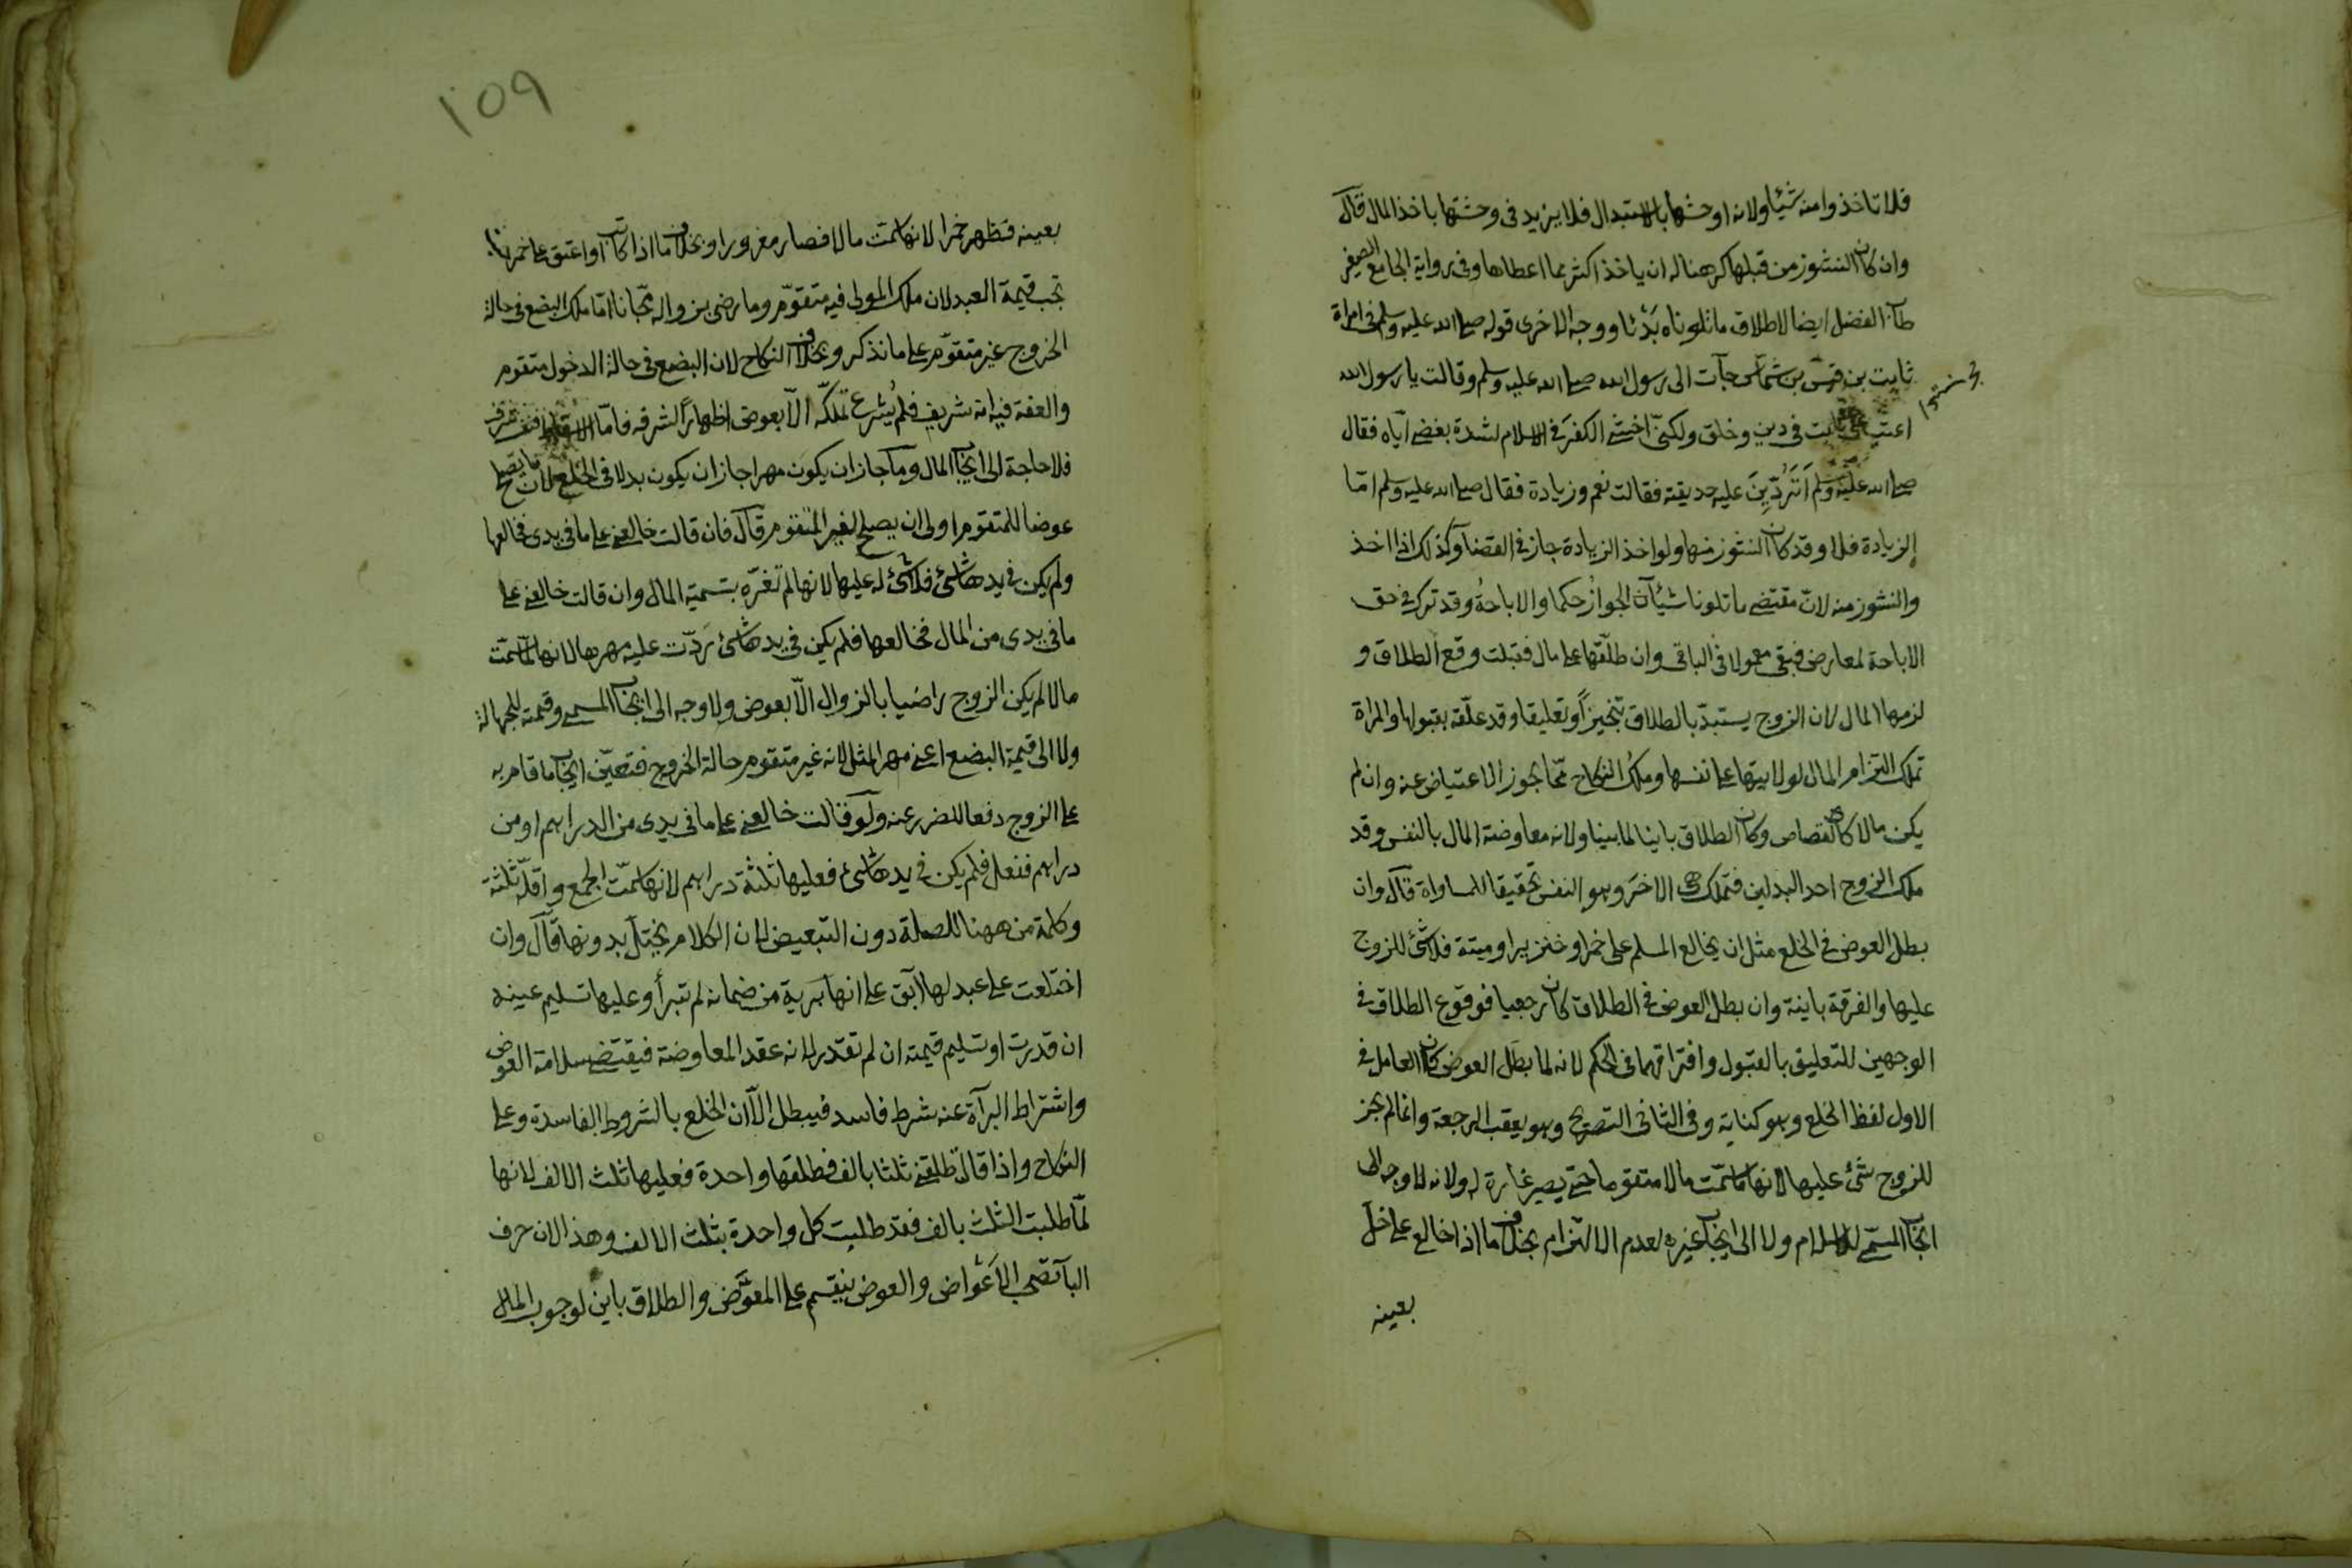 فلا تاخذوا منه شيئا ولانه اوحشها بالاستبدال فلا يزيد في وحشتها باخذ المال قال
وان كان النشوز من قبلها كرهنا له ان ياخذ اكثر مما اعطاها وفي رواية الجامع الصغير
طاب الفضل ايضا لاطلاق ما تلوناه بدئا ووجه الاخرى قوله صلى الله عليه وسلم في امراة
ثابت بن قيس بن شماس جآت الى رسول الله صلى الله عليه وسلم وقالت يا رسول الله
ثابت في دين وخلق ولكني اخشى الكفر في الاسلام لشدة بغضي اياه فقال
صلى الله عليه وسلم اَتَرُدِّينَ عليه حديقته فقالت نعم وزيادة فقال صلى الله عليه وسلم امّا
الزيادة فلا وقد كان النشوز منها ولو اخذ الزيادة جاز في القضا وكذلك اذا اخذ
والنشوز منه لانّ مقتضى ما تلونا شيئان الجوازُ حكما والاباحةُ وقد ترك في حق
الاباحة لمعارض فبقى معمولا في الباقى وان طلّقها على مال فقبلت وقع الطلاق و
لزمها المال لان الزوج يستبدّ بالطلاق تنجيزاً وتعليقا وقد علّقه بقبولها والمراة
تملك التزام المال لولايتها على نفسها وملكُ النكاح ممّا يجوز الاعتياض عنه وان لم
يكن مالا كالقصاص وكان الطلاق باينا لما بينا ولانه معاوضة المال بالنفس وقد
ملك الزوج احد البدلين فتملك هى الاخرَ وهو النفس تحقيقا للمساواة قال وان
بطل العوض في الخلع مثل ان يخالع المسلم على خمر او خنزير او ميتة فلا شئ للزوج
عليها والفرقة باينة وان بطل العوض في الطلاق كان رجعيا فوقوع الطلاق في
الوجهين للتعليق بالقبول وافتراقهما في الحكم لانه لما بطل العوض كان العامل في
الاول لفظ الخلع وهو كناية وفى الثانى الصريح وهو يعقب الرجعة وانما لم يجز
للزوج شئ عليها لانها ما سمّت مالا متقوما حتى يصير غارة له ولانه لا وجه الى
ايجاب المسمّى للاسلام ولا الى ايجاب غيره لعدم الالتزام بخلاف ما اذا خالع على خلّ
بعينه
١٥٩
بعينه فظهر خمرا لانها سمّت مالا فصار مغرورا وبخلاف ما اذا كاتب او اعتق على خمر
تجب قيمة العبد لان ملك المولى فيه متقوّم وما رضى بزواله مجّانا امّا ملك البضع في حالة
الخروج غير متقوّم على ما نذكر وبخلاف النكاح لان البضع في حالة الدخول متقوم
والفقه فيه انه شريف فلم يُشرع تملّكه الّا بعوض اظهاراً لشرفه فامّا الاسقاط فنفسه شرف
فلا حاجة الى ايجاب المال وما جاز ان يكون مهرا جاز ان يكون بدلا في الخلع لان ما يصلح
عوضا للمتقوم اولى ان يصلح لغير المتقوم قال فان قالت خالعنى على ما في يدى فخالعها
ولم يكن في يدها شئ فلا شئ له عليها لانها لم تغرّه بتسمية المال وان قالت خالعنى على
ما في يدى من المال فخالعها فلم يكن في يدها شئ رَدّت عليه مهرها لانها لمّا سمّت
مالا لم يكن الزوج راضيا بالزوال الّا بعوض ولا وجه الى ايجاب المسمى وقيمته للجهالة
ولا الى قيمة البضع اعنى مهر المثل لانه غير متقوم حالة الخروج فتعيّن ايجاب ما قام به
على الزوج دفعا للضرر عنه ولو قالت خالعنى على ما في يدى من الدراهم او من
دراهم ففعل فلم يكن في يدها شئ فعليها ثلثة دراهم لانها سمّت الجمع واقلّه ثلثة
وكلمة من ههنا للصلة دون التبعيض لان الكلام يختلّ بدونها قال وان
اختلعت على عبد لها آبق على انها برية من ضمانه لم تبرأ وعليها تسليم عينه
ان قدرت او تسليم قيمته ان لم تقدر لانه عقد المعاوضة فيقتضى سلامة العوض
واشتراط البرآة عنه شرط فاسد فيبطل الّا ان الخلع بالشروط الفاسدة وعلى
النكاح واذا قالت طلقنى ثلثا بالف فطلقها واحدة فعليها ثلث الالف لانها
لمّا طلبت الثلث بالف فقد طلبت كل واحدة بثلث الالف وهذا لان حرف
البآ تصحب الاَعْواض والعوض ينقسم على المعوَّض والطلاق باين لوجوب المال